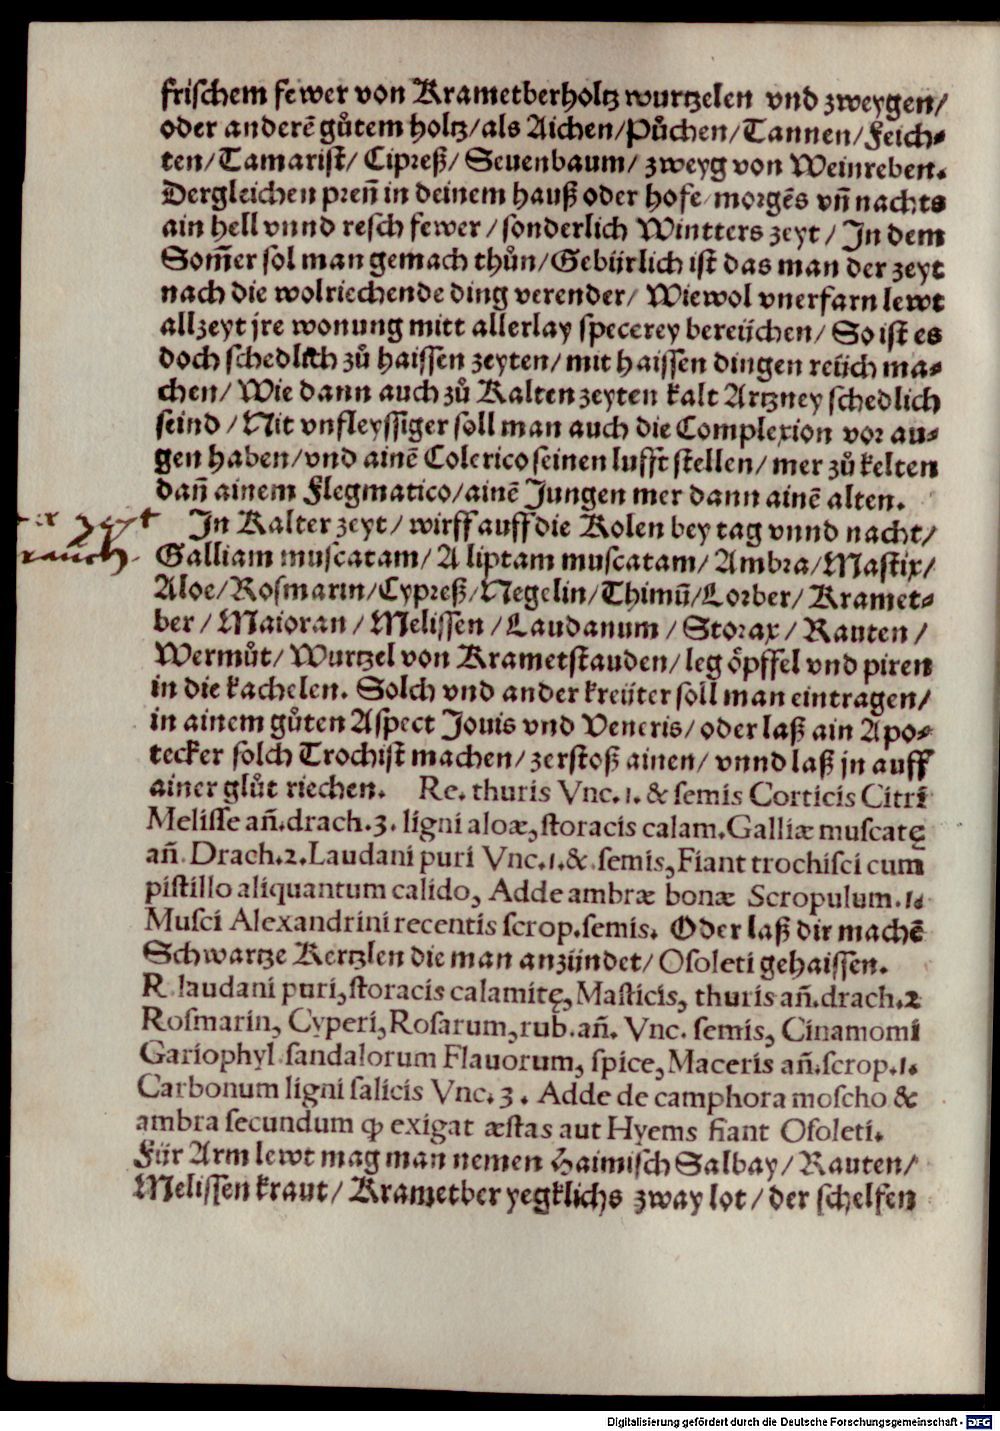 frischem fewer von Krametberholtz wurtzelen vnd zweygen/
oder anderē gůtem holtz/als Aichen/Půchen/Tannen/Feich-
ten/Tamarist/ Cipreß/ Seuenbaum/ zweyg von Weinreben.
Dergleichen preñ in deinem hauß oder hofe/morgēs vñ nachts
ain hell vnnd resch fewer/sonderlich Wintters zeyt/ In dem
Som̃er sol man gemach thůn/Gebürlich ist das man der zeyt
nach die wolriechende ding verender/ Wiewol vnerfarn lewt
allzeyt jre wonung mitt allerlay specerey bereüchen/ So ist es
doch schedlich zů haissen zeyten/ mit haissen dingen reüch ma-
chen/ Wie dann auch zů Kalten zeyten kalt Artzney schedlich
seind/Nit vnfleyssiger soll man auch die Complexion vor au-
gen haben/vnd ainē Colerico seinen lufft stellen/ mer zů kelten
dañ ainem Flegmatico/ainē Jungen mer dann ainē alten.
zeyt
rauch.
In Kalter zeyt/ wirff auff die Kolen bey tag vnnd nacht/
Galliam muscatam/ A liptam muscatam/ Ambra/Mastix/
Aloe/Rosmarin/Cypreß/Negelin/Thimũ/Lorber/ Kramet-
ber/ Maioran/ Melissen/Laudanum/ Storax/ Rauten/
Wermůt/ Wurtzel von Krametstauden/leg öpffel vnd piren
in die kachelen. Solch vnd ander kreüter soll man eintragen/
in ainem gůten Aspect Jouis vnd Veneris/ oder laß ain Apo-
tecker solch Trochist machen/ zerstoß ainen/ vnnd laß jn auff
ainer glůt riechen. Re. thuris Vnc. 1. & semis Corticis Citri
Melisse añ.drach.3. ligni aloæ, storacis calam.Galliæ muscatę
añ.Drach.2.Laudani puri Vnc.1.&.semis,Fiant trochisci cum
pistillo aliquantum calido, Adde ambræ bonæ Scropulum.1.
Musci Alexandrini recentis scrop.semis. Oder laß dir machē
Schwartze Kertzlen die man anzündet/ Osoleti gehaissen.
R laudani puri,storacis calamitę, Masticis, thuris añ.drach.2
Rosmarin, Cyperi,Rosarum,rub.añ. Vnc. semis, Cinamomi
Gariophyl sandalorum Flauorum, spice, Maceris añ.scrop.1.
Carbonum ligni salicis Vnc. 3. Adde de camphora moscho &
ambra secundum ꝙ exigat æstas aut Hyems fiant Osoleti.
Für Arm lewt mag man nemen Haimisch Salbay/ Rauten/
Melissen kraut/ Krametber yegklichs zway lot/ der schelfen
Digitalisierung gefördert durch die Deutsche Forschungsgemeinschaft - DFG